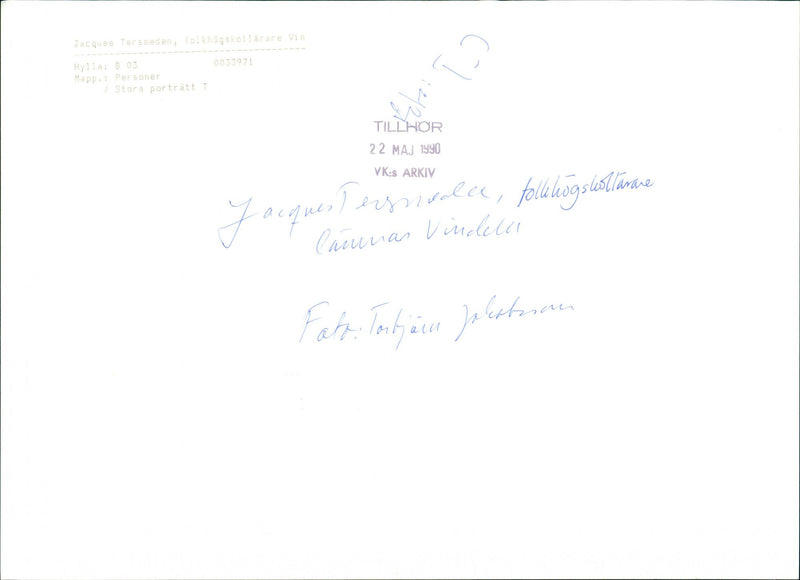 Jacques Tersmeden, folkhögskollärare Vin
Hylla: B 03 0033971
Mapp.: Personer
/ Stora porträtt T
Foto:
TILLHÖR
22 MAJ 1990
VK:s ARKIV
Jacques Tersmeden, folkhögskollärare
lämnar Vindeln
Foto: Torbjörn Jakobsson